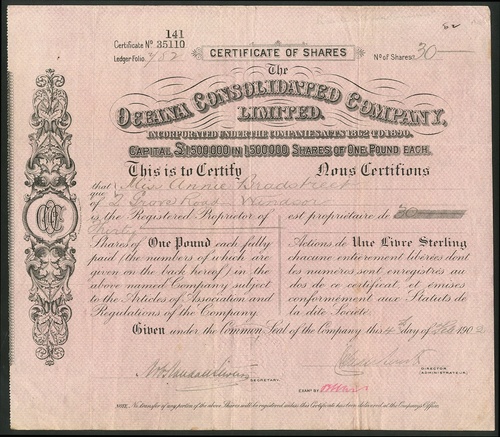 141
Certificate No. 35110
Ledger Folio. 482
CERTIFICATE OF SHARES
No of Shares: 30
The
OCEANA CONSOLIDATED COMPANY,
LIMITED.
INCORPORATED UNDER THE COMPANIES ACTS 1862 TO 1890.
CAPITAL £1,500,000 IN 1,500,000 SHARES OF ONE POUND EACH.
This is to Certify Nous Certifions
that Miss Annie Bradstreet
que
of 2 Grove Road Windsor
is the Registered Proprietor of est propriétaire de 30
Thirty
Shares of One Pound each fully Actions de Une Livre Sterling
paid (the numbers of which are chacune entièrement libérées dont
given on the back hereof) in the les numéros sont enregistrés au
above named Company subject dos de ce certificat et émises
to the Articles of Association and conformément aux Statuts de
Regulations of the Company. la dite Société.
Given under the Common Seal of the Company this 4th day of Feb 190
SECRETARY.
DIRECTOR
(ADMINISTRATEUR)
EXAMD BY
NOTE. No transfer of any portion of the above Shares will be registered unless this Certificate has been delivered at the Company's Offices.